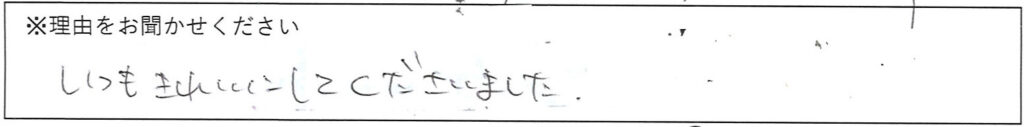 ※理由をお聞かせください
いつもきれいにしてくださいました.